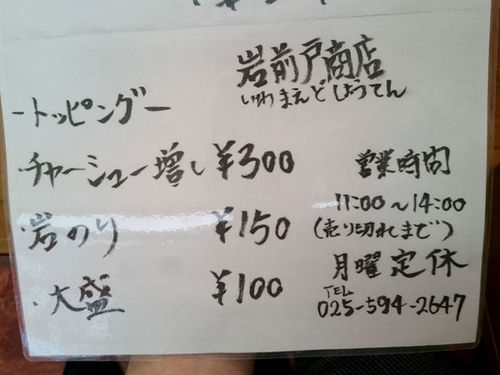 岩前戸商店
いわまえどしょうてん
-トッピング-
チャーシュー増し ¥300
・岩のり ¥150
・大盛 ¥100
営業時間
11:00~14:00
(売り切れまで)
月曜定休
TEL
025-594-2647